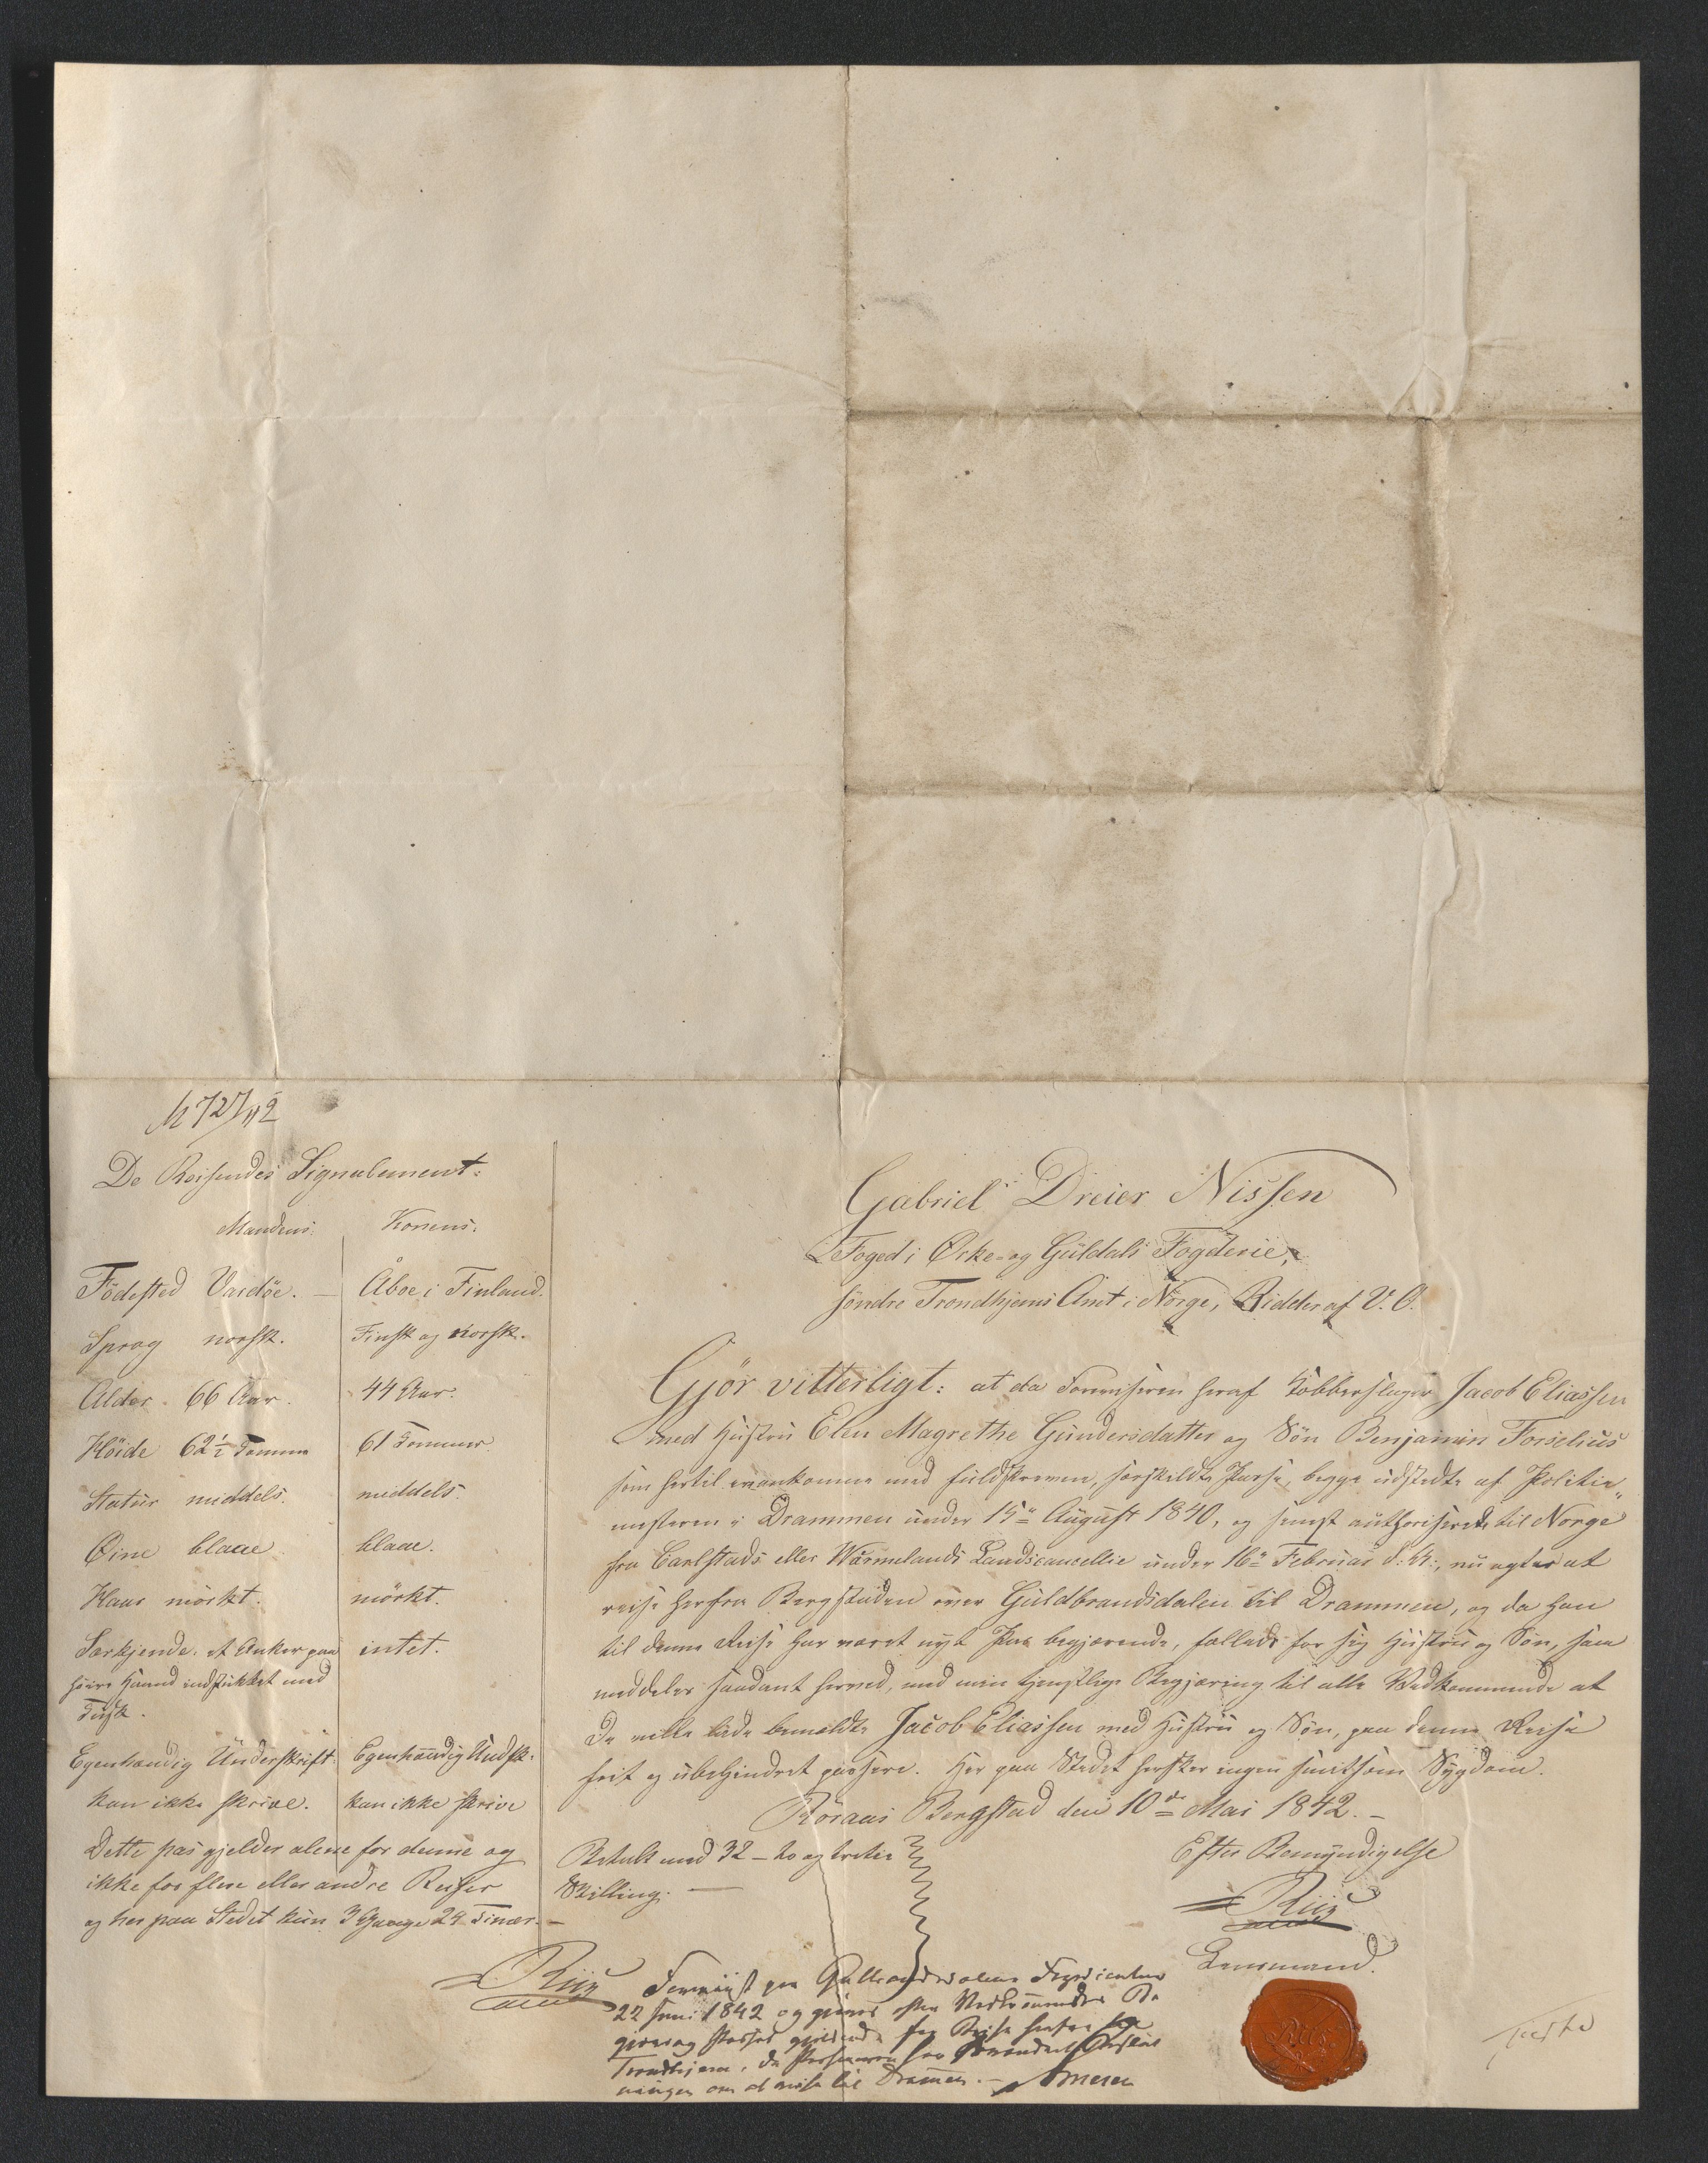 No 727/42
De Reisendes Signalement:
Mandens: Konens:
Födested Vardöe. – Åboe i Finland.
Sprog norsk. Finsk og norsk.
Alder 66 Aar. 44 Aar.
Höide 62½ Tomme 61 Tommer
Statur middels. middels.
Öine blaae blaae.
Haar mörkt. mörkt.
Særkjende. et Anker paa intet.
höire Haand indstukket med
Tusk.
Egenhændig Underskrift: Egenhændig Undsk:
kan ikke skrive. kan ikke skrive
Dette pas gjelder alene for denne og
ikke for flere eller andre Reiser
og her paa Stedet kun 3 Gange 24 Timer. –
Riis
Gabriel Dreier Nissen
Foged i Orke- og Guldals Fogderie,
söndre Trondhjems Amt i Norge, Ridder af V. O.
Gjör vitterligt: at da Foreviseren heraf Kobberslager Jacob Eliassen
med Hustru Elen Magrethe Gundersdatter og Sön Benjamin Forselius
som hertil er ankomne med fuldskreven, særskildte Passe, begge udstedte af Politie-
mesteren i Drammen under 15de August 1840, og senest authoriserede til Norge
fra Carlstads eller Wärmelands Landscancellie under 16de Februar d: A:, nu agter at
reise herfra Bergstaden over Guldbrandsdalen til Drammen, og da han
til denne Reise har været nyt Pas begjærende, fælleds for sig Hustru og Sön, som
meddeles saadant herved, med min tjenstlige Begjæring til alle Vedkommende at
De ville lade bemeldte Jacob Eliassen med Hustru og Sön, paa denne Reise
frit og ubehindret passere. Her paa Stedet hersker ingen smitsom Sygdom.
Röraas Bergstad den 10de Mai 1842. –
Betalt med 32 – to og tretie
Skilling. –
Efter Bemyndigelse
Riis
Lensmand.
Foreviist paa Gulbrandsdalens Fogdicontor
22 Juni 1842 og gjöres efter Vedkommendes Be
gjæring Passet gjeldende for Reise herfra
Trondhjem, da Passhaveren har forandret
ningen om at reise til Drammen. –